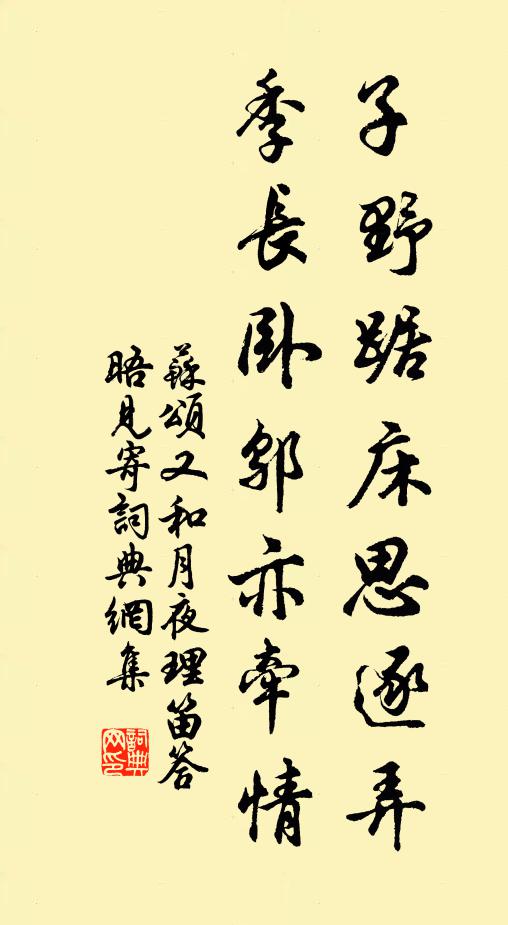 子野踞床思逐弄
季長卧鄔亦牽情
蘇頌又和月夜理笛答
晤見寄詞典網集
詞典网印